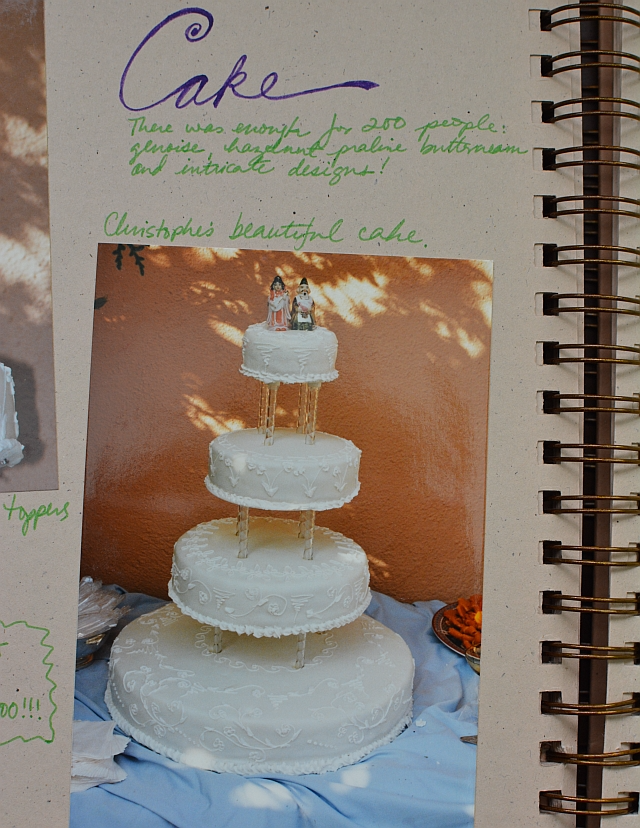 Cake
There was enough for 200 people:
genoise, hazelnut praline buttercream
and intricate designs!
Christophe's beautiful cake.
toppers
00!!!